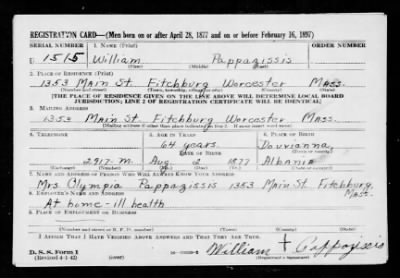 REGISTRATION CARD—(Men born on or after April 28, 1877 and on or before February 16, 1897)
SERIAL NUMBER 1. NAME (Print) ORDER NUMBER
U 1515 William Pappagissis
(First) (Middle) (Last)
2. PLACE OF RESIDENCE (Print)
1353 Main St. Fitchburg Worcester Mass.
(Number and street) (Town, township, village, or city) (County) (State)
[THE PLACE OF RESIDENCE GIVEN ON THE LINE ABOVE WILL DETERMINE LOCAL BOARD
JURISDICTION; LINE 2 OF REGISTRATION CERTIFICATE WILL BE IDENTICAL]
3. MAILING ADDRESS
1353 Main St. Fitchburg Worcester Mass.
[Mailing address if other than place indicated on line 2. If same insert word same]
4. TELEPHONE 5. AGE IN YEARS 6. PLACE OF BIRTH
64 years. Douvianna,
DATE OF BIRTH (Town or county)
2917-M. Aug. 2 1877 Albania
(Exchange) (Number) (Mo.) (Day) (Yr.) (State or country)
7. NAME AND ADDRESS OF PERSON WHO WILL ALWAYS KNOW YOUR ADDRESS
Mrs. Olympia Pappagissis 1353 Main St. Fitchburg, Mass.
8. EMPLOYER'S NAME AND ADDRESS
At home - ill health
9. PLACE OF EMPLOYMENT OR BUSINESS
(Number and street or R. F. D. number) (Town) (County) (State)
I AFFIRM THAT I HAVE VERIFIED ABOVE ANSWERS AND THAT THEY ARE TRUE.
D. S. S. Form 1
(Revised 4-1-42) William + Pappagissis
(Registrant's signature)